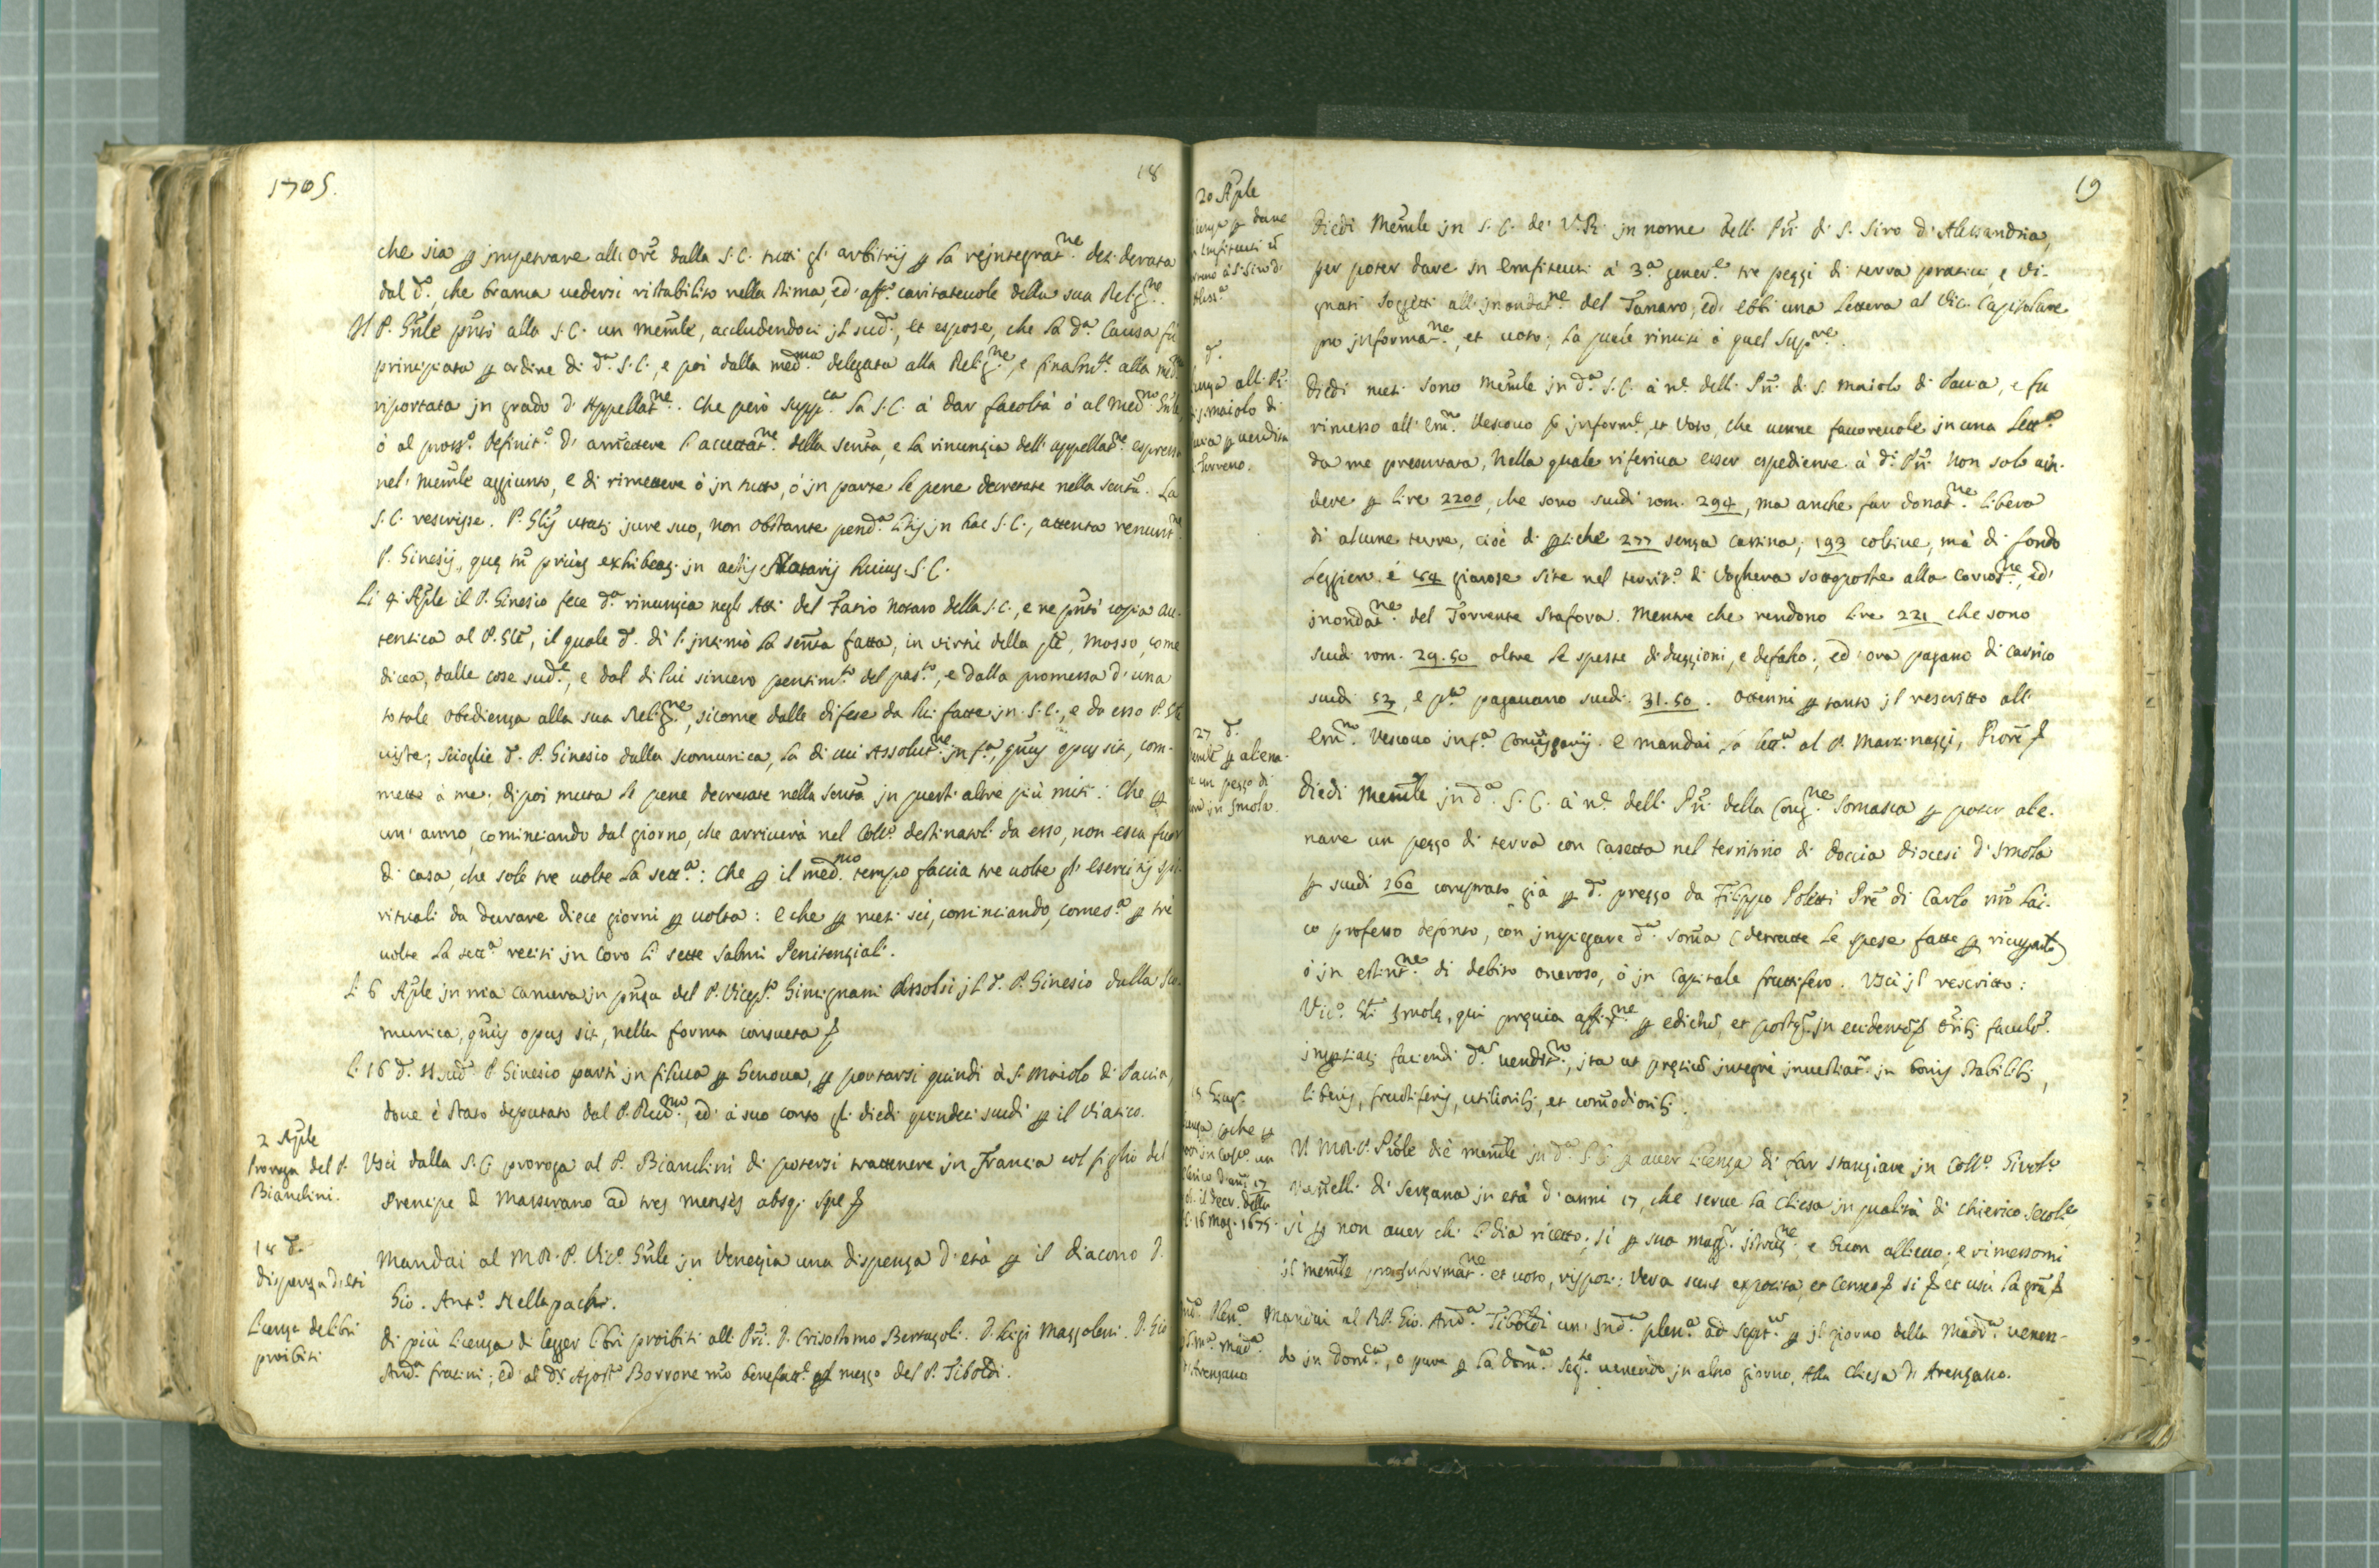 1705.
18
che sia ꝑ jmpetrare all: Ore dalla S.C. tutti gl' arbitrij ꝑ la rejntegratne desiderata
dal do. che brama vedersi ristabilito nella stima, ed' affo. caritatevole della sua Religne.
Il P. Gnle pntò alla S.C. un memle, accludendoci jl sudo, et espose, che la da. Causa fù
principiata ꝑ ordine di da. S.C., e poi dalla medma. delegata alla Religne, e finalmte. alla
riportata jn grado d' Appellatne. Che però suppca. la S.C. à dar facoltà ò al medmo. Gnle,
ò al prosso. Definito. d' ammettere l'accettatne della senta, e la rinunzia dell' appellatne. espressa
nel' memle aggiunto, e di rimettere ò jn tutto, ò jn parte le pene decretate nella senta. La
S.C. rescrisse. P. Glis utatr jure suo, non obstante penda. litis jn hac S.C., attenta renuntne
P. Ginesij, quę tn priùs exhibeatr jn actis Notarij huius S.C.
Li 4 Aple il P. Ginesio fece da. rinunzia negli Atti del Fatio notaro della S.C., e ne pntò copia au-
tentica al P. Gle, il quale do. dì l'intimò la senta fatta, in virtù della qle, mosso, come
dicea, dalle cose sude., e dal di lui sincero pentimto. del passto., e dalla promessa d' una
totale obedienza alla sua Religne, sicome dalle difese da lui fatte jn S.C., e da esso P. Gle
viste; scioglie do. P. Ginesio dalla scomunica, la di cui Assolutne jnfa, qnus opus sit, com-
mette à me. dipoi muta le pene decretate nella senta jn quest' altre più miti: Che ꝑ
un' anno, cominciando dal giorno, che arriverà nel Collo. destinatoli da esso, non esca fuor
di casa, che sole tre volte la setta.: Che ꝑ il medmo. tempo faccia tre volte gl' esercitij spi-
rituali da durare diece giorni ꝑ volta: e che ꝑ mesi sei, cominciando, come sa. ꝑ tre
volte la setta. reciti jn coro li sette Salmi Penitenziali.
Li 6 Aple jn mia camera jn pnza del P. Vicepto. Gimignani Assolsi jl do. P. Ginesio dalla sco-
munica, qnus opus sit, nella forma consueta
Li 16 do. Il sudo. P. Ginesio partì jn filuca ꝑ Genova, ꝑ portarsi quindi à S. Maiolo di Pavia,
dove è stato deputato dal P. Revmo., ed' à suo conto gli diedi quindeci scudi ꝑ il viatico.
2 Aple
Proroga del P.
Bianchini.
Uscì dalla S.C. proroga al P. Bianchini di potersi trattenere jn Francia col figlio del
Prencipe di Masserano ad tres menses absq; spe
18 do.
dispenza d'età
Mandai al M.R.P. Vico. Gnle jn Venezia una dispenza d'età ꝑ il diacono D.
Gio. Anto. Mellapachi.
Licenza de libri
proibiti
di più licenza di legger libri proibiti alli PP. D. Crisostomo Bertazoli. D. Luigi Mazzoleni. D. Gio
Anda. fratini; ed' al Dr. Agosto. Borrone nro benefatte. ꝑ mezzo del P. Tiboldi.
19
20 Aple
ꝑ dare
Enfiteusi
à S. Siro d'
Alessa.
Diedi Memle jn S.C. de' V.R. jn nome delli PP. di S. Siro d' Alessandria,
per poter dare in Emfiteusi à 3a. genere. tre pezzi di terra prativi, e vi-
gnati soggetti all' jnondatne del Tanaro, ed' ebbi una lettera al Vic. Capitolare
pro jnformatne, et voto; la quale rimisi à quel Supre.
do.
alli PP.
S. Maiolo di
ꝑ vendita
terreno.
Diedi mesi sono memle jn da. S.C. à ne. delli PP. di S. Maiolo di Pavia, e fu
rimesso all' Emo. Vescovo ꝑ jnforme, et voto, che venne favorevole jn una letta.
da me presentata, nella quale riferiva esser espediente à di. PP. non solo ven-
dere ꝑ lire 2200, che sono scudi rom. 294, ma anche far donatne. libera
di alcune terre, cioè di ꝑtiche 277 senza cassina; 193 coltive, mà di fondo
leggiero, e 84 giarose site nel territo. di Voghera sottoposte alla corrosne, ed'
jnondatne del Torrente Stafora. Mentre che rendono lire 221 che sono
scudi rom. 29.50 oltre le spesse diduzzioni, e defalco; ed' ora pagano di carico
scudi 53, e pa. pagavano scudi 31.50. Ottenni ꝑ tanto jl rescritto all'
Emo. Vescovo jnfa. e mandai la letta. al P. Martinazzi, Piore
27 do.
memle ꝑ aliena-
re un pezzo di
jn Imola
Diedi Memle jn da. S.C. à ne. delli PP. della Congne. Somasca ꝑ poter alie-
nare un pezzo di terra con casetta nel territorio di Doccia diocesi d' Imola
ꝑ scudi 160 comprato già ꝑ do. prezzo da Filippo Poletti Pre di Carlo nro lai-
co professo defonto, con jmpiegare da. soma (detratte le spese fatte ꝑ ricupcarlo)
ò jn estintne. di debito oneroso, ò jn capitale fruttifero. Uscì jl rescritto:
Vico. Gli Imolę, qui pręvia affixne. ꝑ edictu, et postqm. jn evidente Oratorib; facultem.
jmptiatr faciendi da. venditno., ita ut pretiu jntegrè jnvestiatr jn bonis stabilib;,
liberis, fructiferis, utiliorib;, et comodiorib;.
che ꝑ
jn Collo. un
Chierico d'anni 17
il decr. della
S.C. 16 Mag. 1675.
Il M.R.P. Pnle diè memle jn da. S.C. ꝑ aver licenza di far stanziare jn Collo. Girolo.
Vastelli di Sergana jn età d'anni 17, che serve la Chiesa jn qualità di Chierico secole
sì ꝑ non aver chi li dia ricetto; sì ꝑ sua maggr. istruzne. e buon allievo; e rimessomi
jl memle pro jnformatne. et voto, rispozi: Vera sunt exposita, et censeo si et uscì la gra
Plena.
Mada.
d' Arenzano
Mandai al R.P. Gio. Anda. Tiboldi un' Inda. plena. ad septm ꝑ jl giorno della Mada. venen-
do jn Doma., o pure ꝑ la doma. segte. venendo jn altro giorno, Alla Chiesa d' Arenzano.